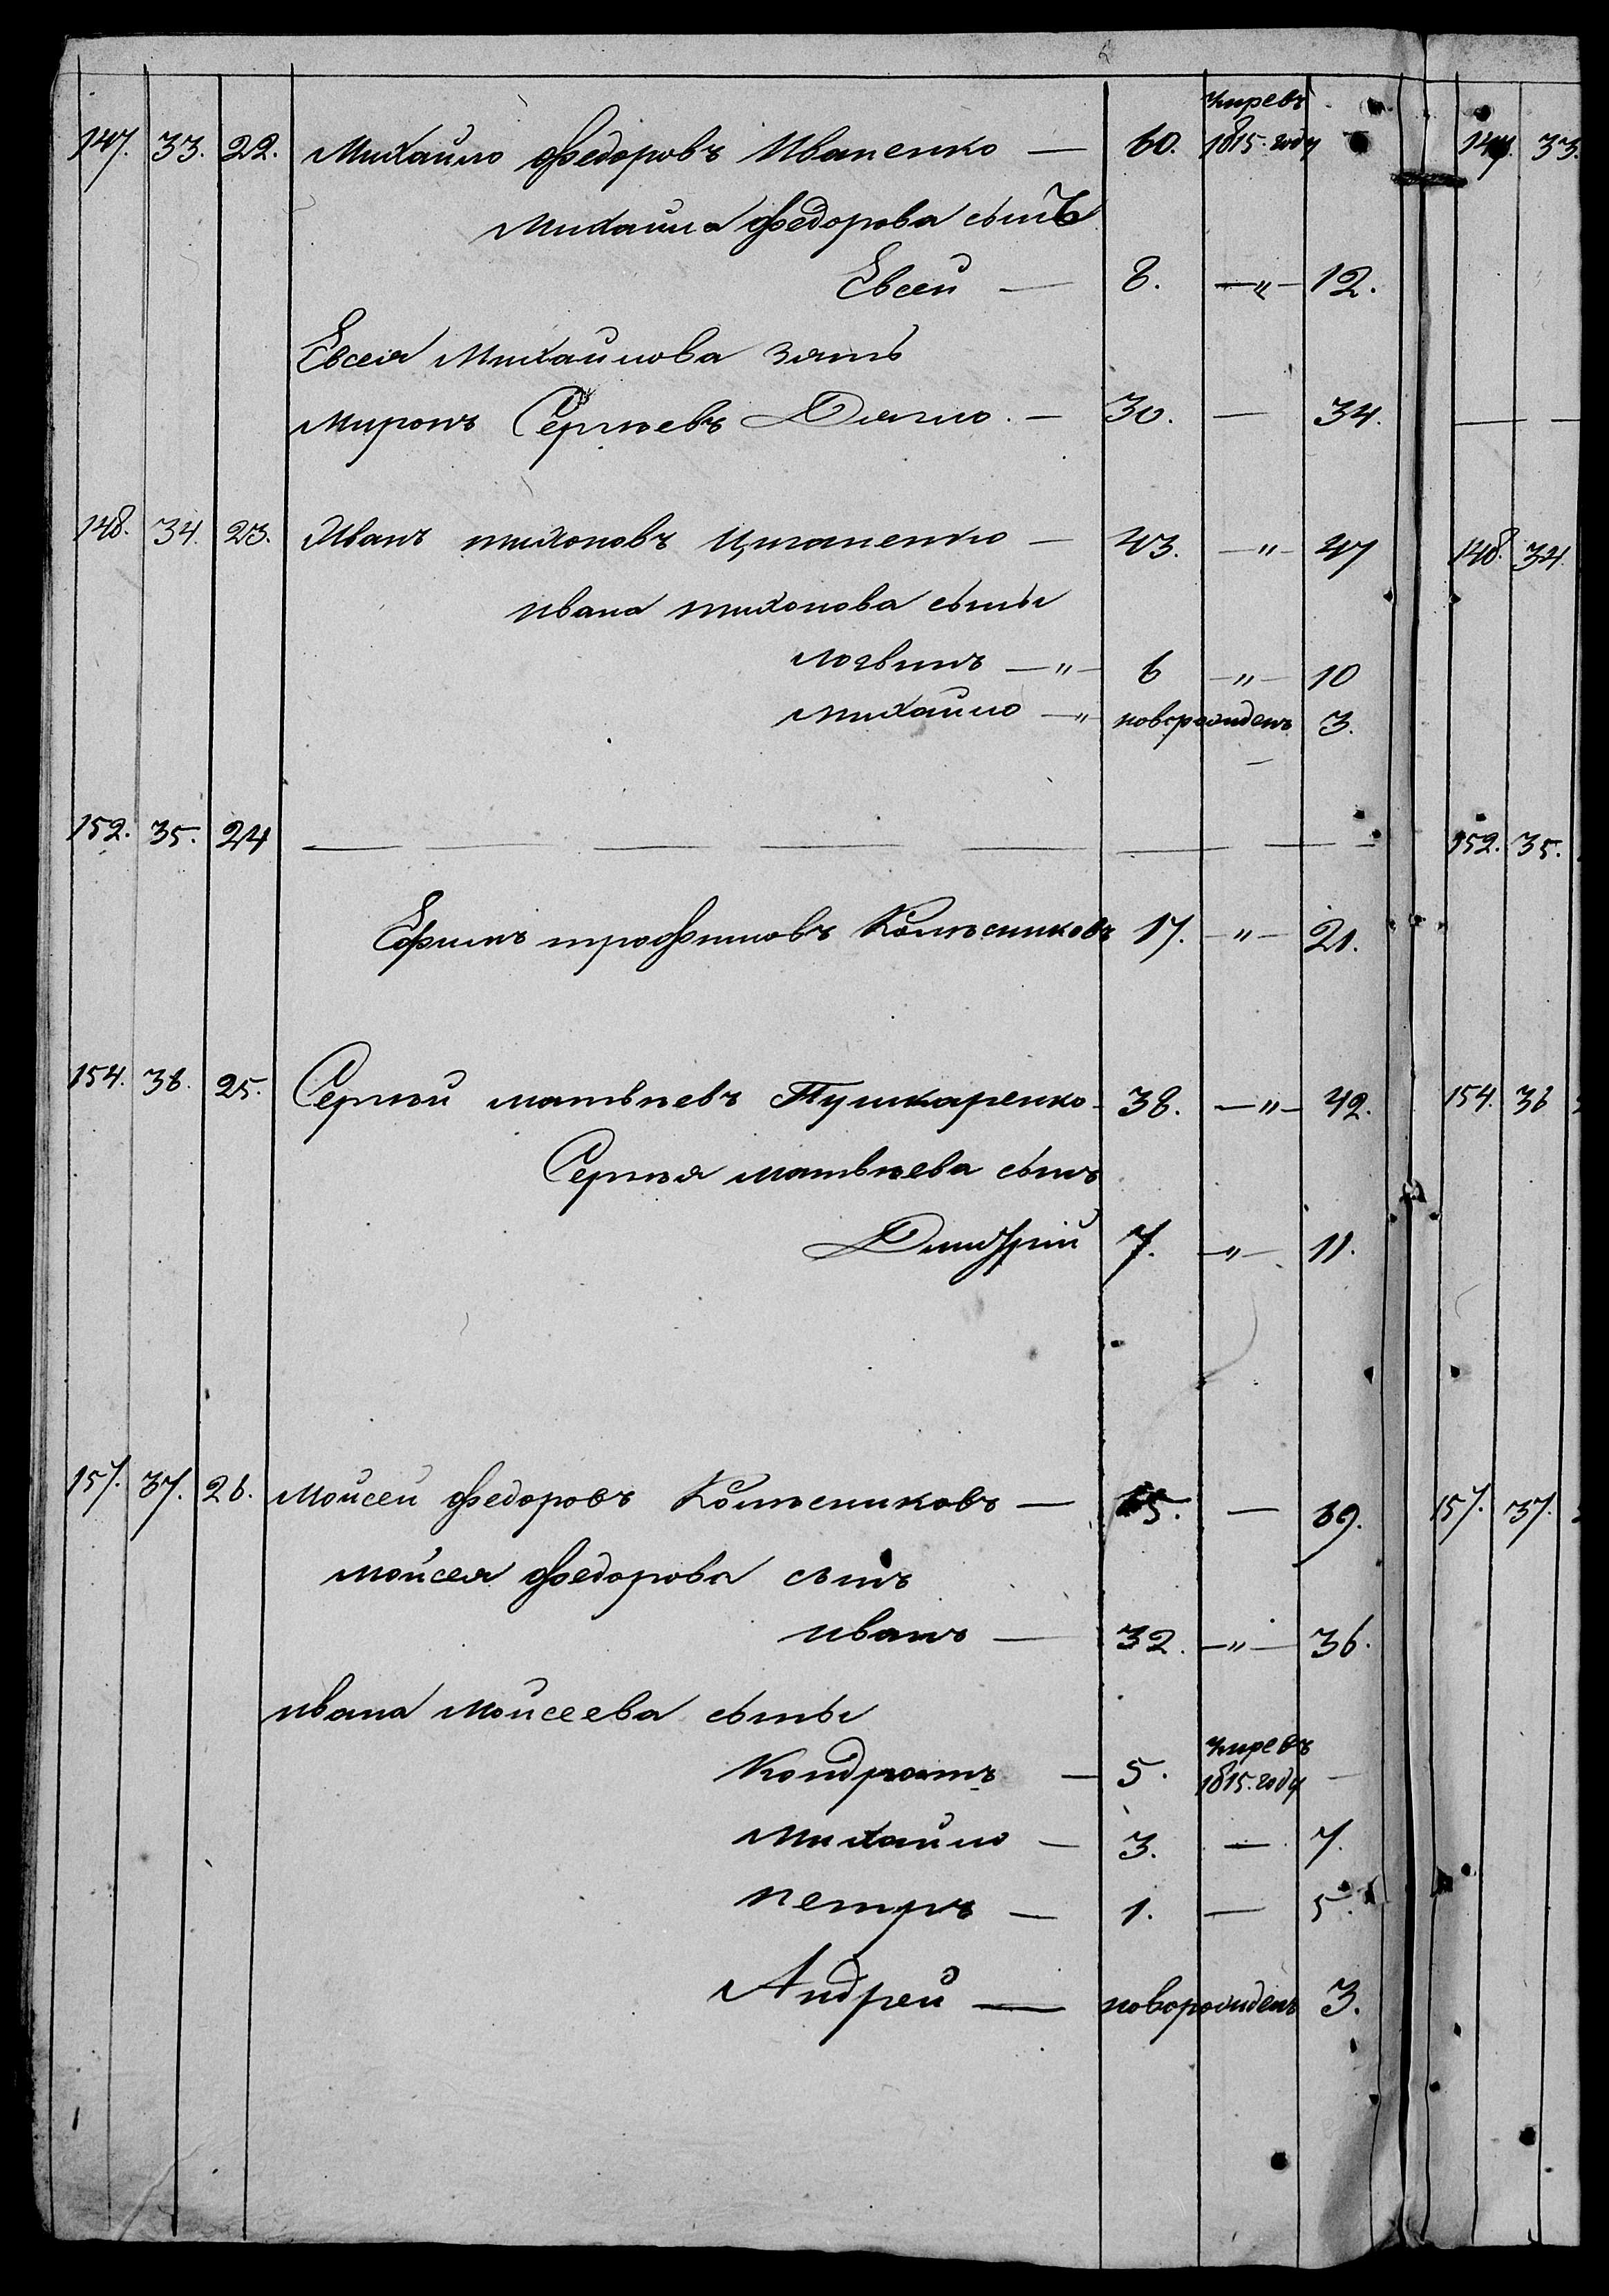 умре въ
147. 33. 22. Михайло Федоровъ Иваненко — 60. 1815. году 147. 33.
Михаила Федорова сынъ
Евсей — 8. —"— 12.
Евсея Михайлова зять
Миронъ Сергѣевъ Дягло. — 30. — 34.
148. 34. 23. Иванъ тихоновъ Циганенко — 43. —"— 47 148. 34.
ивана тихонова сыны
логвинъ —"— 6 —"— 10
михайло —"— новорожденъ 3.
152. 35. 24 — — — — — — — 152. 35.
Ефимъ трофимовъ Колѣсниковъ 17. —"— 21.
154. 36. 25. Сергѣй матвѣевъ Пушкаренко — 38. —"— 42. 154. 36
Сергѣя матвѣева сынъ
Дмитрій 7. —"— 11.
157. 37. 26. Мойсей Федоровъ Колѣсниковъ — 65. — 69. 157. 37.
Мойсея Федорова сынъ
иванъ — 32. —"— 36.
ивана Мойсеева сыны
умре въ
Кондратъ — 5. 1815. году —
Михайло — 3. — 7.
петръ — 1. — 5.
Андрей — новорожденъ 3.